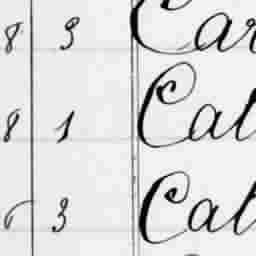 8 9 Car
8 1 Cal
6 3 Cal